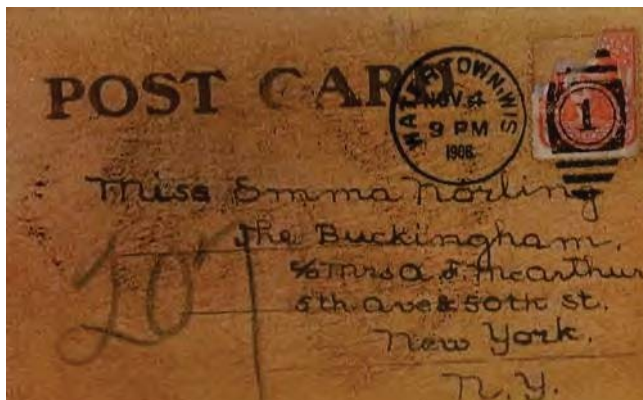 POST CARD
WATERTOWN, WIS
NOV 4
9 PM
1906
1
Miss Emma Norling
The Buckingham,
c/o Mrs A. F. McArthur
5th Ave & 50th St.
New York.
N.Y.